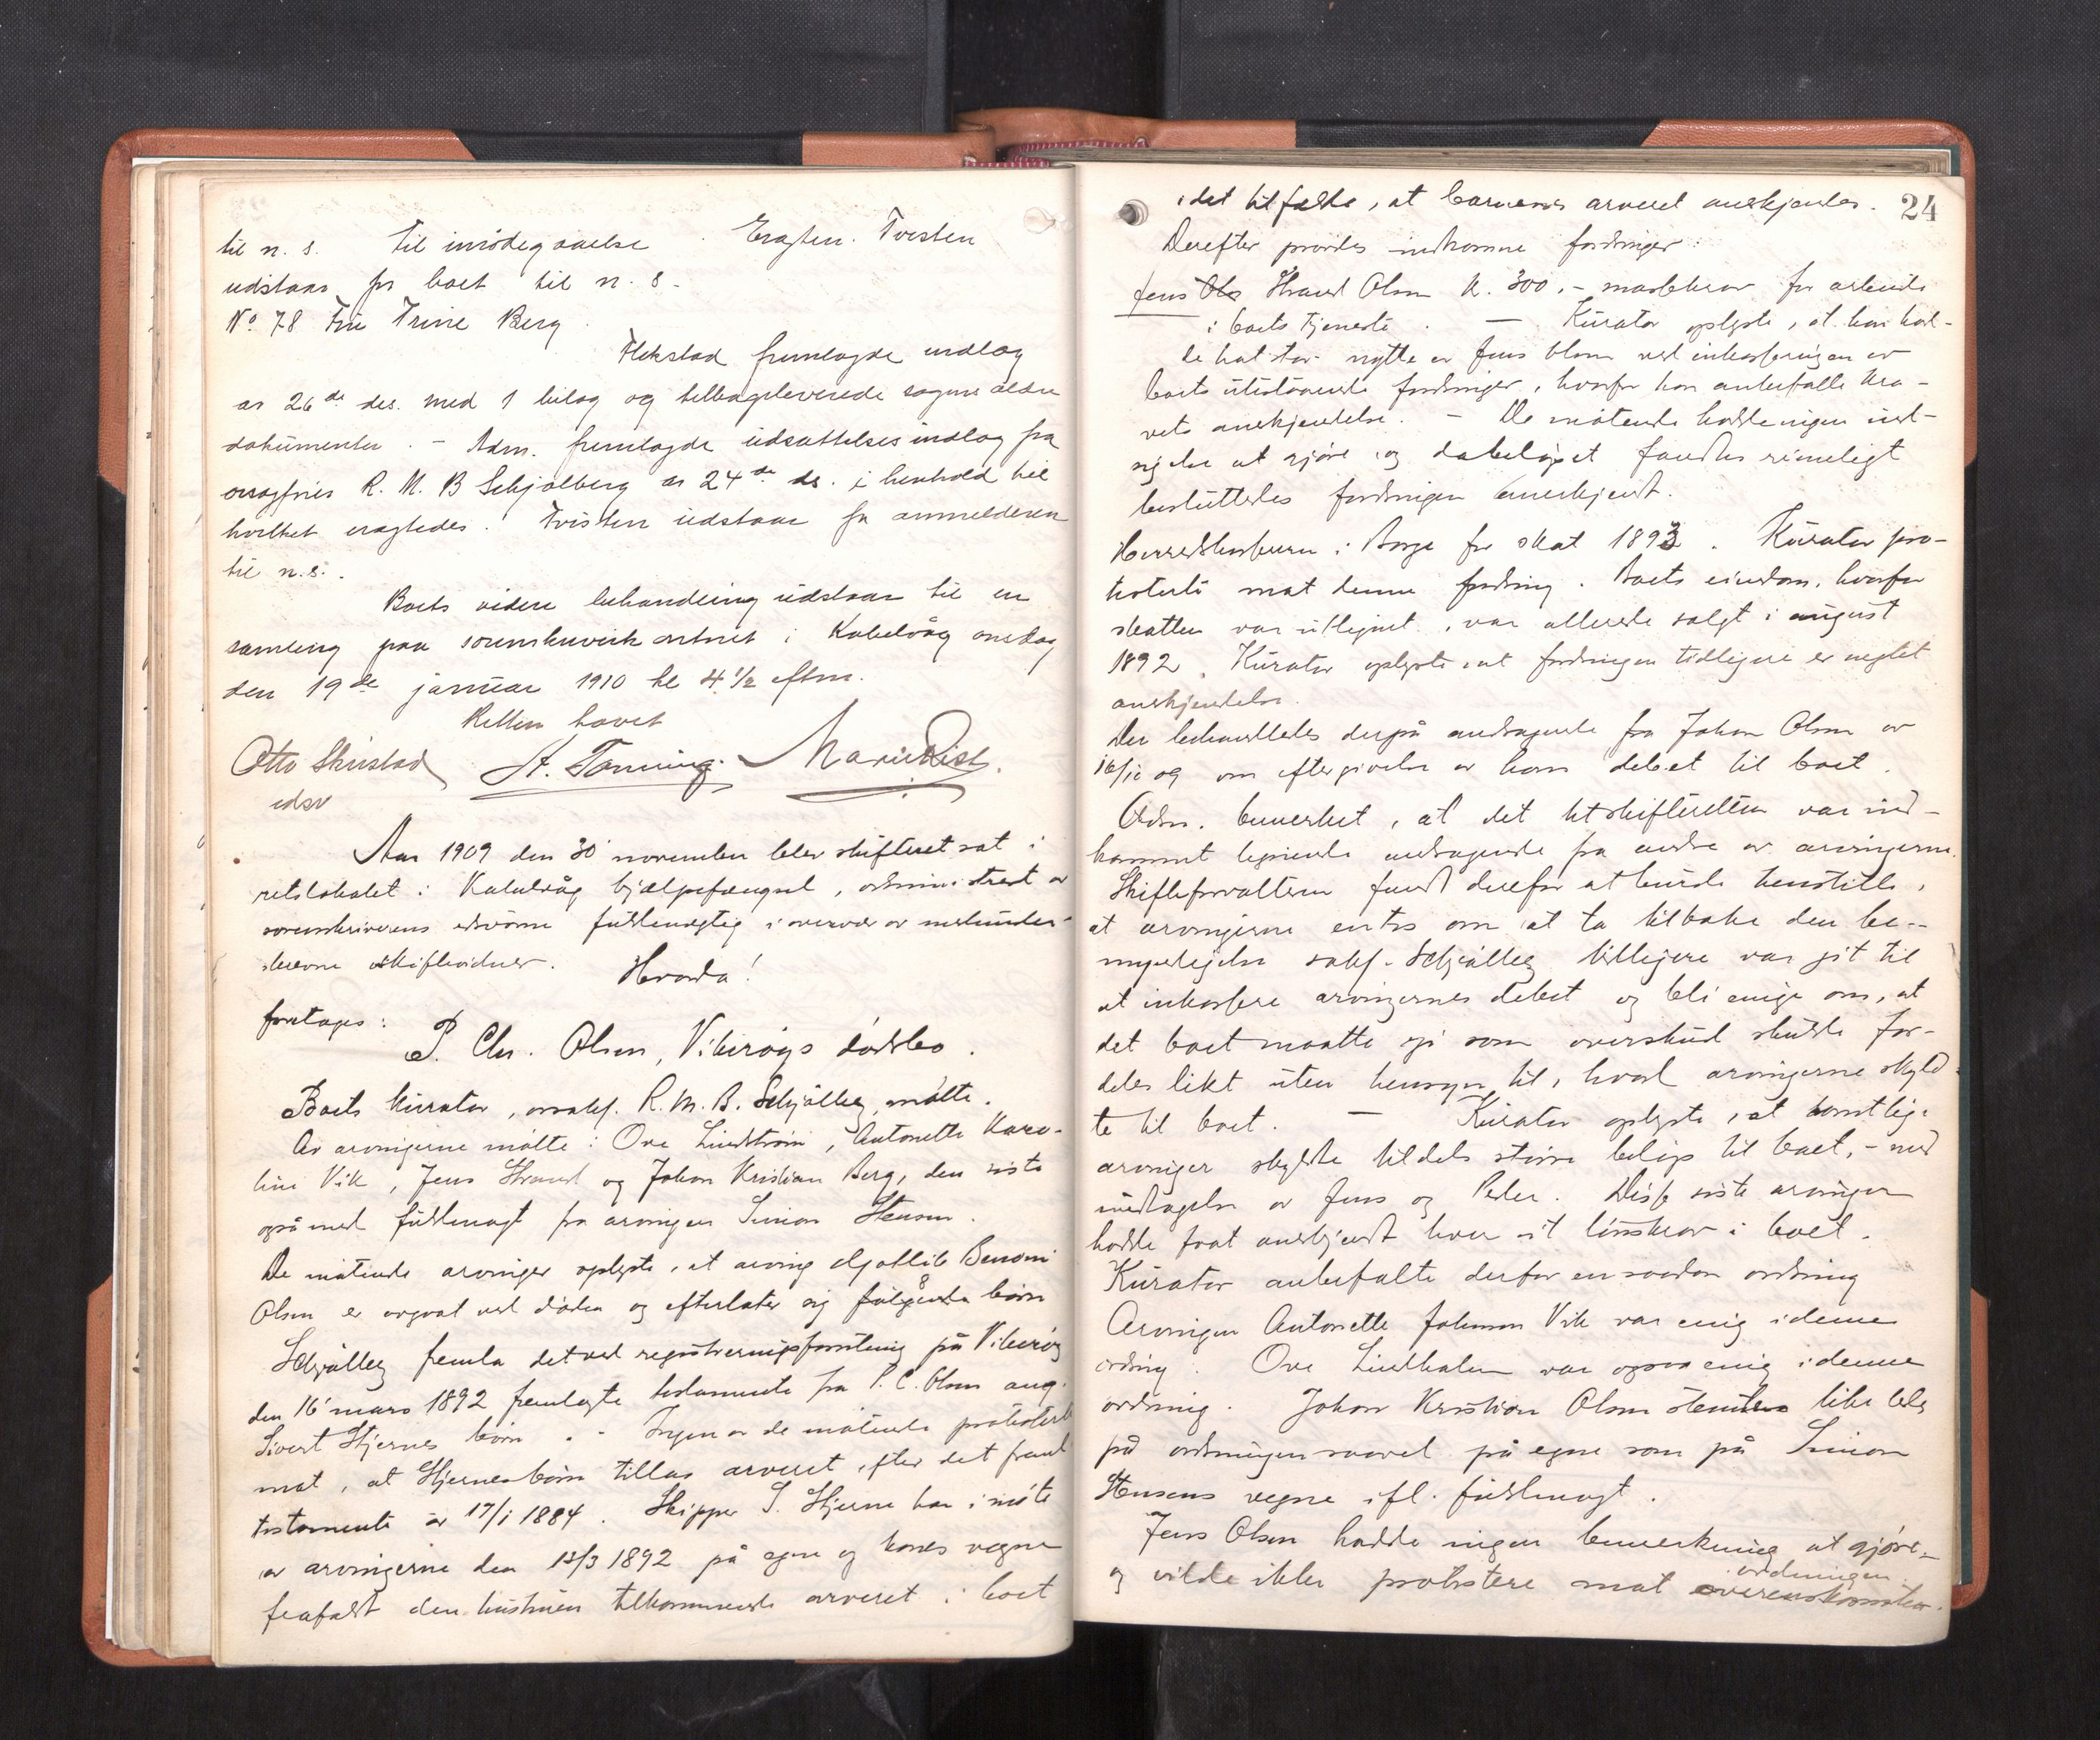 til n. s. til imødegaaelse. Eragten. Tvisten
udstaar for boet til n. s.
No 78 Fru Trine Berg.
Flekstad fremlagde indlæg
av 26de ds. med 1 bilag og tilbageleverede sagens ældre
dokumenter. - Adm. fremlagde udsættelsesindlæg fra
orsagfører R. M. B Schjølberg av 24de ds. i henhold til
hvilket eragtedes: Tvisten udstaar for anmelderen
til n. s..
Boets videre behandling udstaar til en
samling paa sorenskriverkontoret i Kabelvåg onsdag
den 19de januar 1910 kl 4 1/2 eftm.
Retten hævet
Otto Skirstad A. Tønning. Marie Rist.
edsv
Aar 1909 den 30 november blev skifteret sat i
retslokalet i Kabelvåg hjælpefængsel, administrert av
sorenskriverens edsvorne fuldmægtig i overvær av nedenunder-
skrevne skiftevidner.
Hvorda!
foretages:
P. Chr. Olsen, Vikerøys dødsbo.
Boets kurator, orsakf. R. M. B. Schjølberg, møtte.
Av arvingerne møtte: Ove Lindstrøm, Antonette Karo-
line Vik, Jens Strand og Johan Kristian Berg, den siste
også med fuldmagt fra arvingen Simon Stensen.
De møtende arvinger oplyste, at arving Gotlib Benoni
Olsen er avgaat ved døden og efterlater sig følgende børn
Schjølberg fremla det ved registreringsforretning på Vikerøy
den 16 mars 1892 fremlagte testamente fra P. C. Olsen ang.
Sivert Stjernes børn. - Ingen av de møtende protesterte
mot, at Stjernes børn tillas arveret efter det freml
testamente av 17/1 1884. Skipper S. Stjerne har i møte
av arvingerne den 15/3 1892 på egne og kones vegne
frafaldt den hustruen tilkommende arveret i boet
24
i det tilfælde, at barnenes arveret anerkjendes.
Derefter prøvdes indkomne fordringer:
Jens Ols Strand Olsen kr. 300,- masekrav for arbeide
i boets tjeneste. - Kurator oplyste, at han had-
de hat stor nytte av Jens Olsen ved inkasseringen av
boets utestaaende fordringer, hvorfor han anbefalte kra-
vets anerkjendelse. - De møtende hadde ingen ind-
sigelse at gjøre og da beløpet fandtes rimeligt
besluttedes fordringen anerkjendt.
Herredskassereren i Borge for skat 1893. Kurator pro-
testerte mot denne fordring. Boets eiendom, hvorfor
skatten var utlignet, var allerede solgt i august
1892. Kurator oplyste, at fordringen tidligere er negtet
anerkjendelse.
Der behandledes derpå andragende fra Johan Olsen av
16/10 09 om eftergivelse av hans debet til boet.
Adm. bemerket, at det til skifteretten var ind-
kommet lignende andragende fra andre av arvingerne.
Skifteforvalteren fandt derfor at burde henstille,
at arvingerne entes om at ta tilbake den be-
myndigelse sakf. Schjølberg tidligere var git til
at inkassere arvingernes debet og bli enige om, at
det boet maatte gi som overskud skulde for-
deles likt uten hensyn til, hvad arvingerne skyld-
te til boet. - Kurator oplyste, at samtlige
arvinger skyldte tildels større beløp til boet, - med
undtagelse av Jens og Peder. Disse siste arvinger
hadde faat anerkjendt hver sit lønskrav i boet.
Kurator anbefalte derfor en saadan ordning
Arvingen Antonette Johnsen Vik var enig i denne
ordning. Ove Lindstrøm var ogsaa enig i denne
ordning. Johan Kristian Olsen stemte like ledes
på ordningen saavel på egne som på Simon
Stensens vegne ifl. fuldmagt.
Jens Olsen hadde ingen bemerkning at gjøre
og vilde ikke protestere mot overenskomsten ordningen.